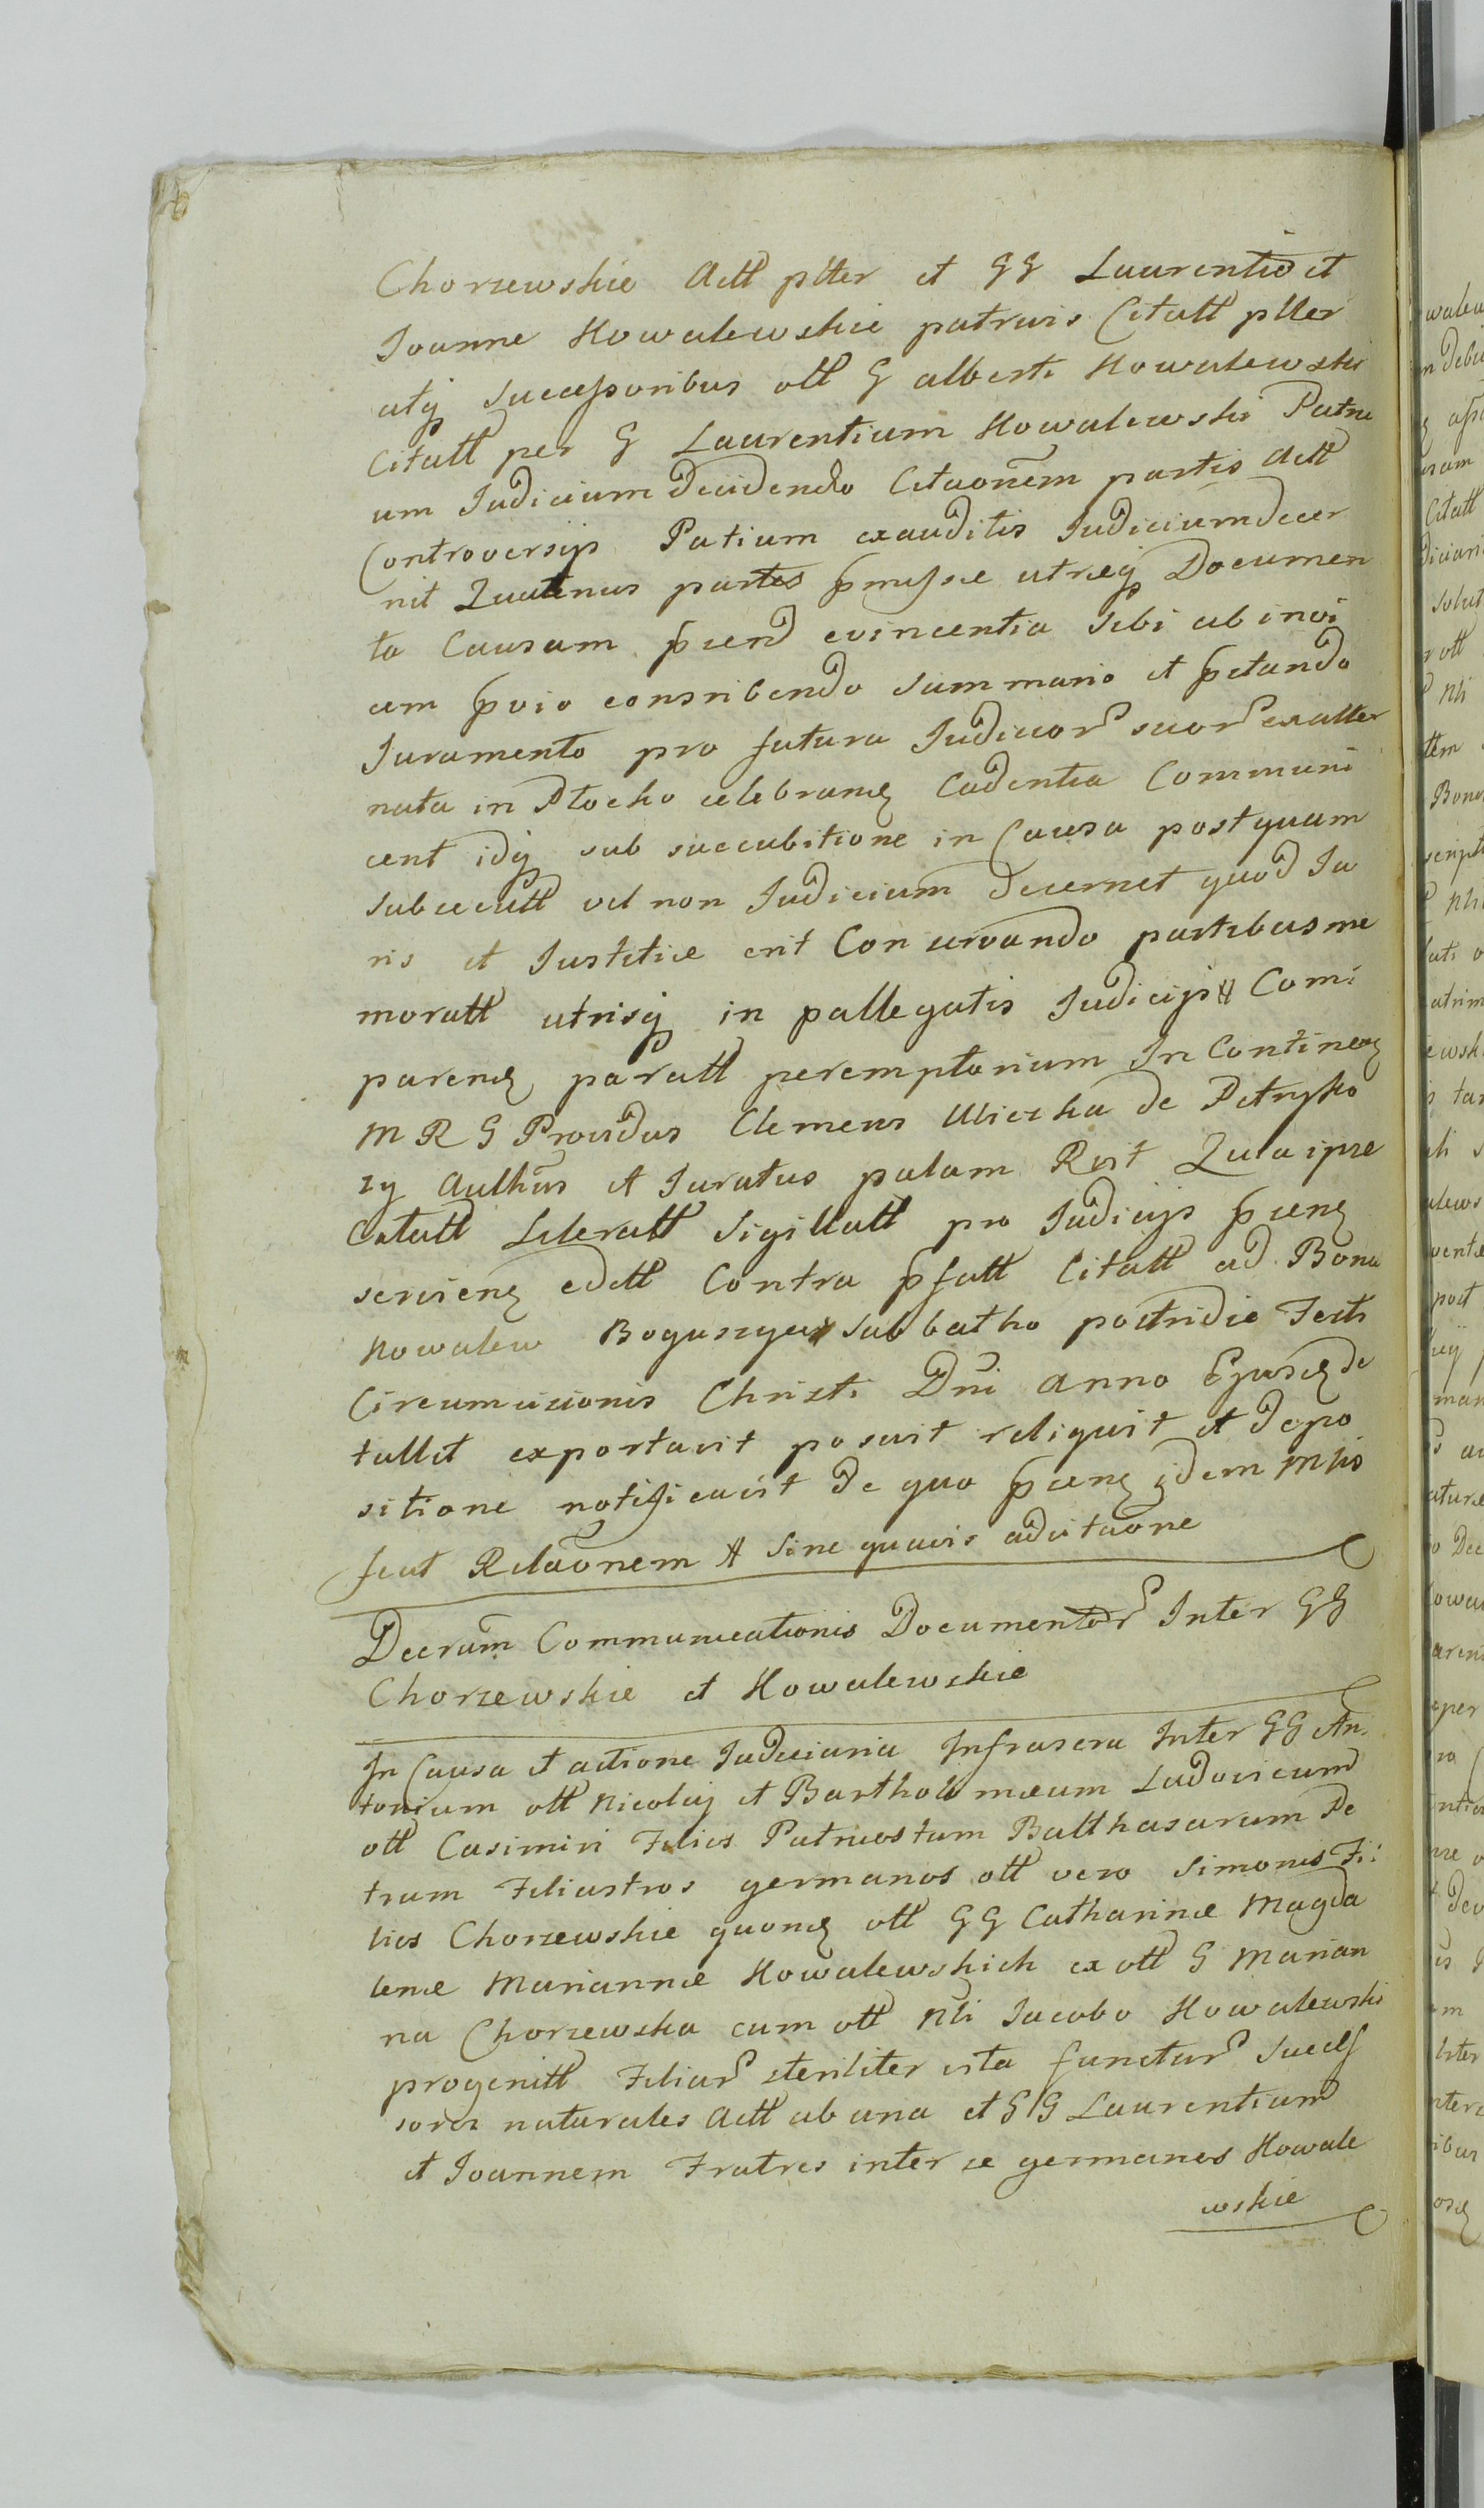 Chorzewskie Actt pltter et GG Laurentio et
Joanne Kowalewskie patruis Citatt pltter
atq successoribus ott G alberti Kowalewski
Citatt per G Laurentium Kowalewski Patru
um Judicium decidendo Citaonem partis Actt
Controversijs Patium exauditis Judicium decer
nit Quatenus partes pmissæ utræq Documen
ta Causam pñend evincentia sibi ab invi
cem pvio conscribendo Summario et pstando
Juramento pro futura Judicior suor exalter
nata in Plocko celebran Cadentia Communi
cent idq sub succubitione in Causa postquam
subsecutt vel non Judicium decernet quod Ju
ris et Justitiæ erit Conservando partibus me
moratt utrisq in pallegatis Judicijs Com
paren paratt peremptorium In Continen
M R G Providus Clemens Ulicka de Petryko
zy Authus et Juratus palam Rvit Quia ipse
Citatt Literatt Sigillatt pro Judicijs psen
servien editt Contra pfatt Citatt ad Bona
Kowalew Boguszyce Sabbatho postridie Festi
Circumcisionis Christi Dni Anno Ejusd de
tullit exportavit posuit reliquit et depo
sitione notificavit de quo psen idem Mlis
fecit Relaonem A sine quavis aducitaone
Decretum Communicationis Documentor Inter GG
Chorzewskie et Kowalewskie
In Causa et actione Judiciaria Infrascra Inter GG An
tonium ott Nicolaj et Bartholomæum Ludovicum
ott Casimiri Filios Patruos tum Balthasarum Pe
trum Filiastros germanos ott vero Simonis Fi
lios Chorzewskie quon ott GG Catharinæ Magda
lenæ Mariannæ Kowalewskich ex ott G Marian
na Chorzewska cum ott Nbli Jacobo Kowalewski
progenitt Filiar steriliter vita functar Succes
sores naturales Actt ab una et GG Laurentium
et Joannem Fratres inter se germanos Kowale
wskie